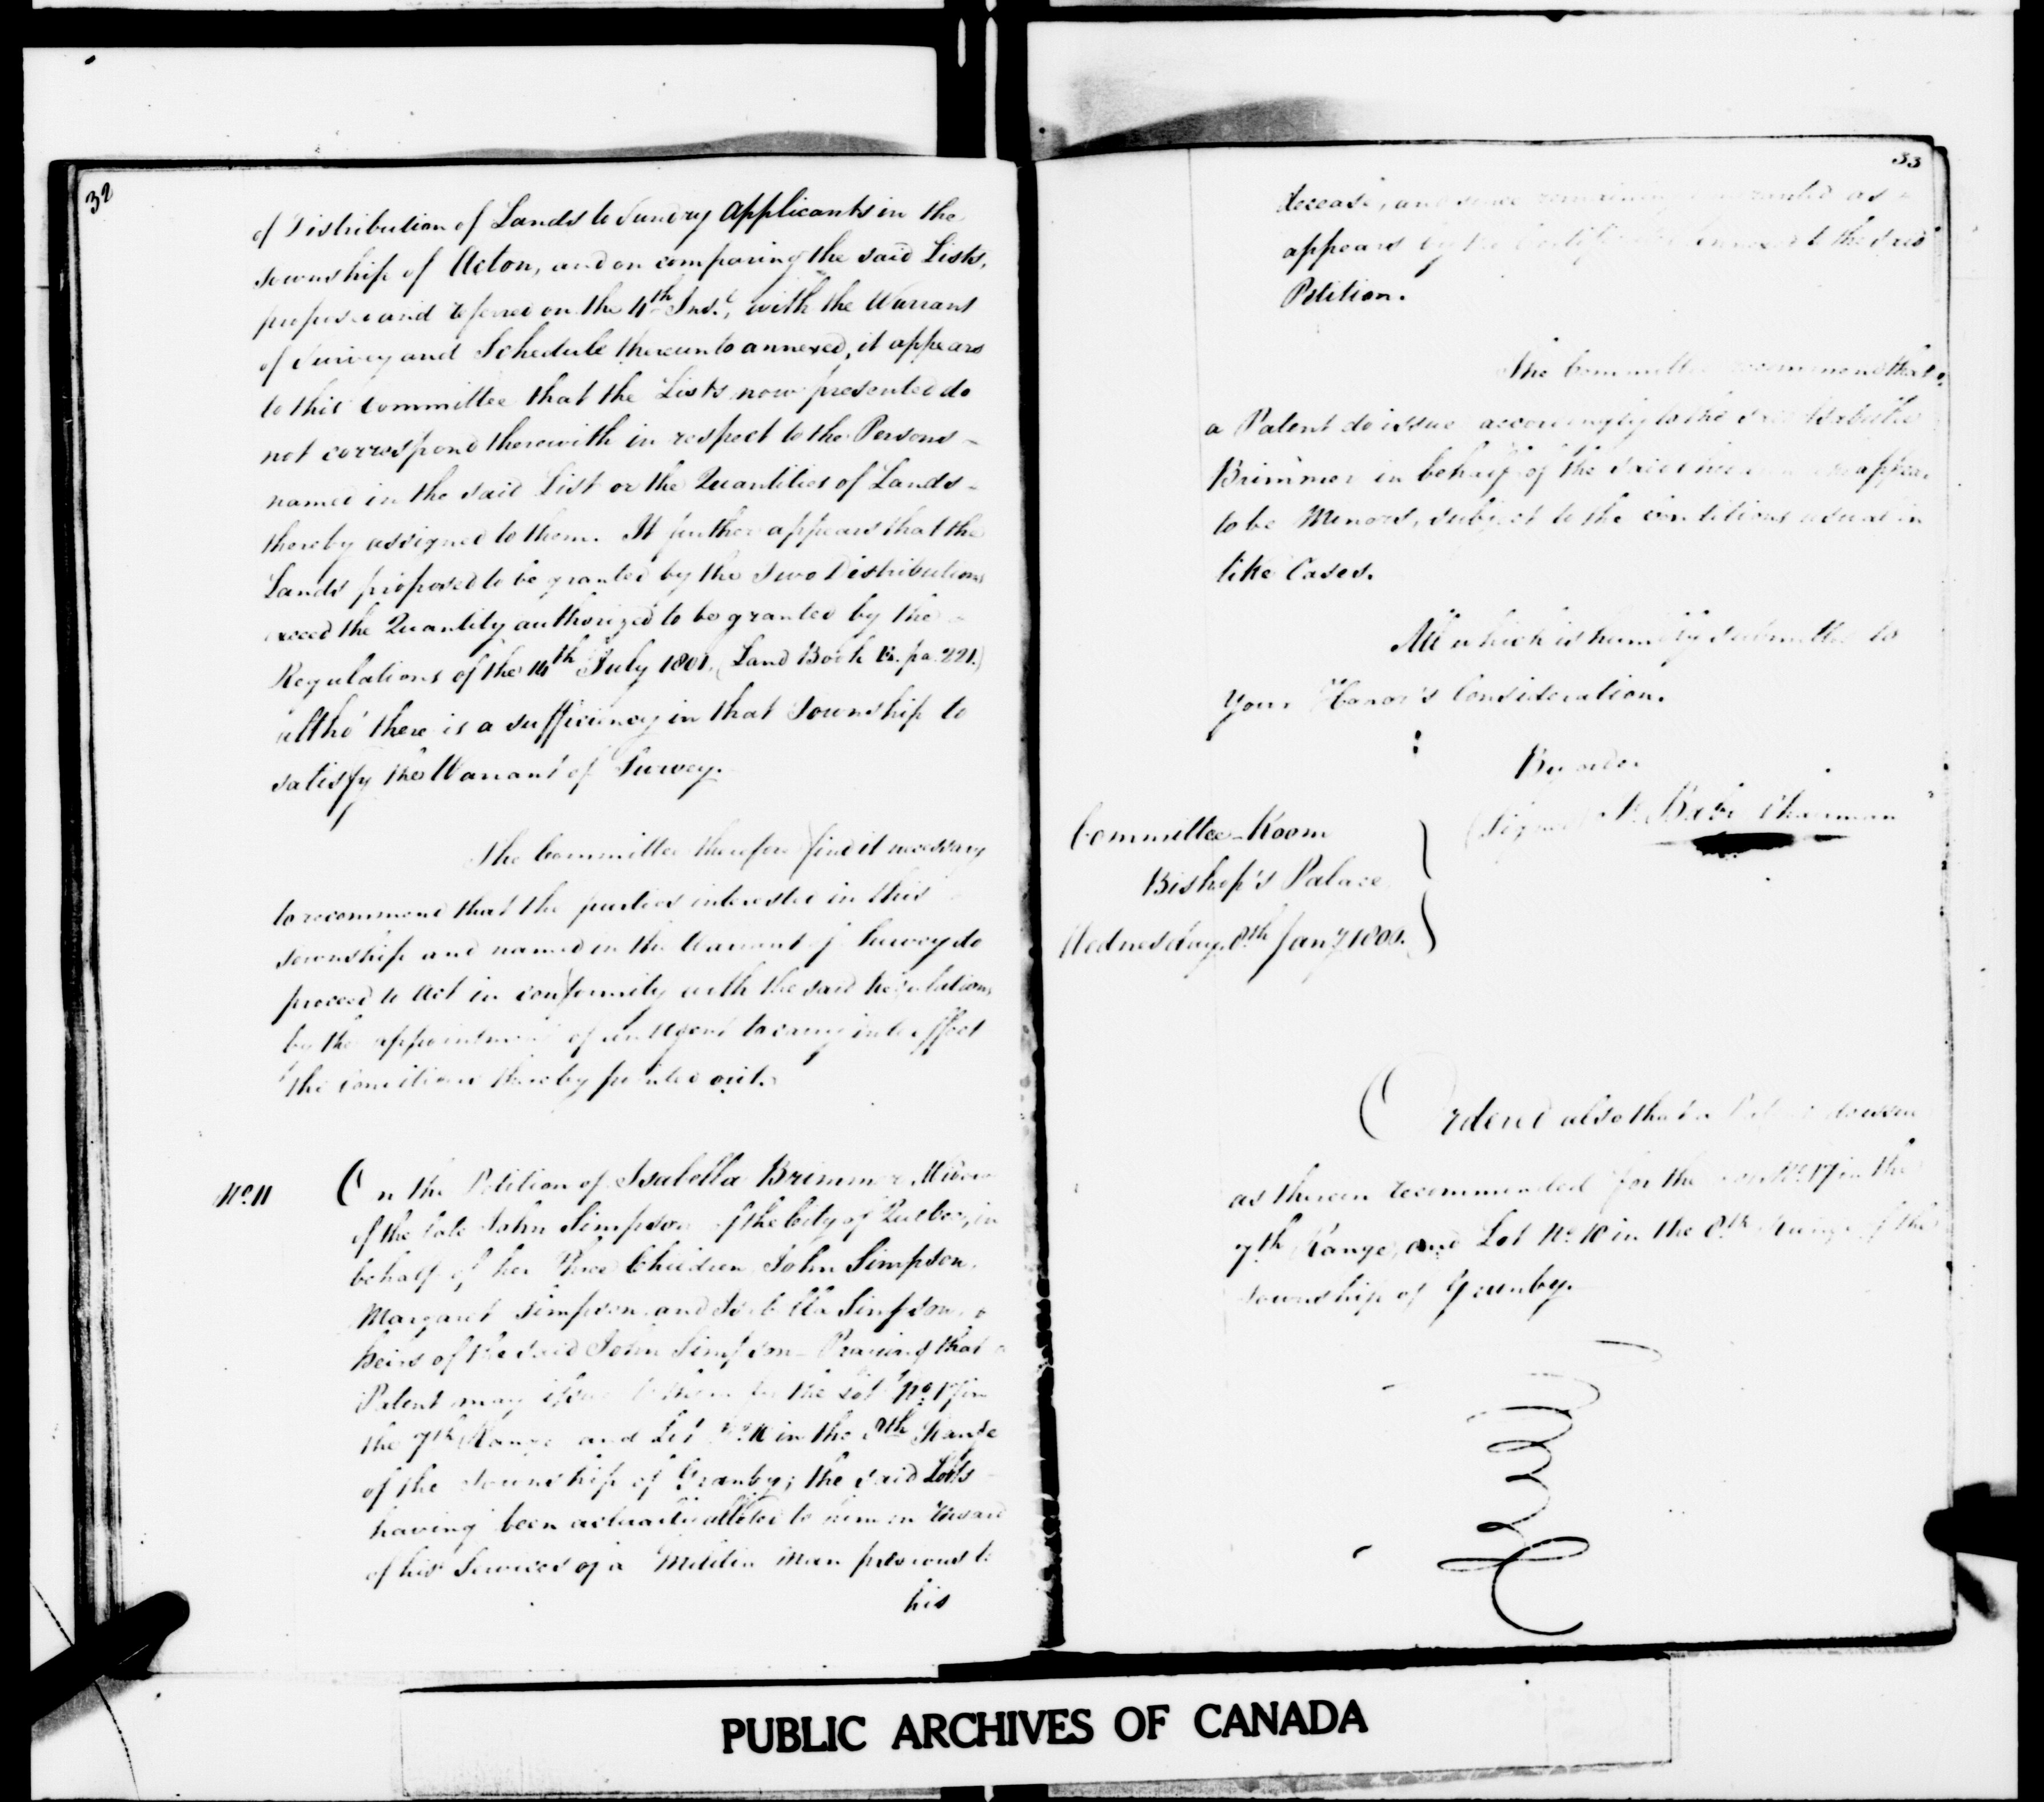 32
of Distribution of Lands to Sundry Applicants in the
Township of Acton, and on comparing the said Lists,
and referred on the 4th Inst., with the Warrant
of Survey and Schedule thereunto annexed, it appears
to this Committee that the Lists now presented do
not correspond therewith in respect to the Persons -
named in the said List or the Quantities of Lands -
thereby assigned to them. It further appears that the
Lands proposed to be granted by the Two Distributions
exceed the Quantity authorized to be granted by the
Regulations of the 14th July 1801, (Land Book pa. 221.)
altho' there is a sufficiency in that Township to
satisfy the Warrant of Survey.
The Committee therefore find it necessary
to recommend that the parties interested in this
Township and named in the Warrant of Survey do
proceed to Act in conformity with the said Regulations
by the appointment of an Agent to carry into effect
the conditions thereby pointed out.
No. 11
On the Petition of Isabella Brimmer Widow
of the late John Simpson of the City of Quebec, in
behalf of her Three Children John Simpson,
Margaret Simpson and Isabella Simpson,
heirs of the said John Simpson - Praying that a
Patent may issue to them for the Lot No. 17 in
the 7th Range and Lot No. 18 in the 8th Range
of the Township of Granby; the said Lots
having been actually allotted to him in Reward
of his Services as a Militia Man previous to
his
33
decease, and since remaining as -
appears by the Certificate annexed to the said
Petition.
The Committee recommend that
a Patent do issue accordingly to the said Isabella
Brimmer in behalf of the said appear
to be Minors, subject to the conditions usual in
like Cases.
All which is humbly submitted to
Your Honor's Consideration.
By order
(Signed) Chairman
Committee Room
Bishop's Palace
Wednesday, 8th Jany
Ordered also that a Patent do issue
as therein recommended for the Lot No. 17 in the
7th Range, and Lot No. 18 in the 8th Range of the
Township of Granby.
PUBLIC ARCHIVES OF CANADA